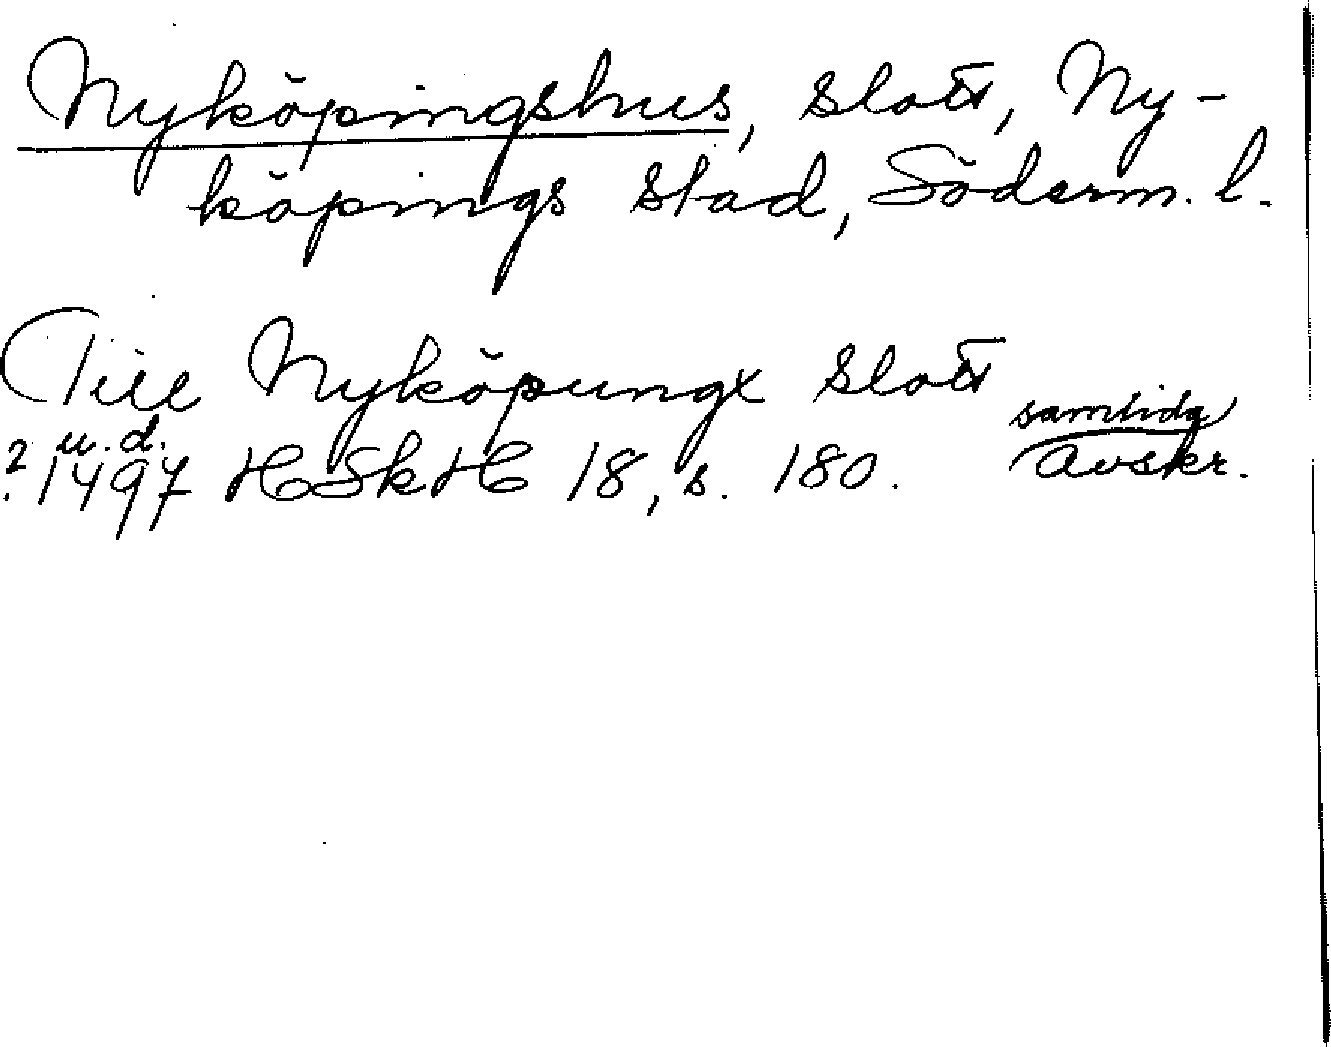 Nyköpingshus, slott, Ny-
köpings stad, Söderm. l.
Till Nyköpungx slott
u.d. samtida
? 1497 HSkH 18, s. 180. avskr.